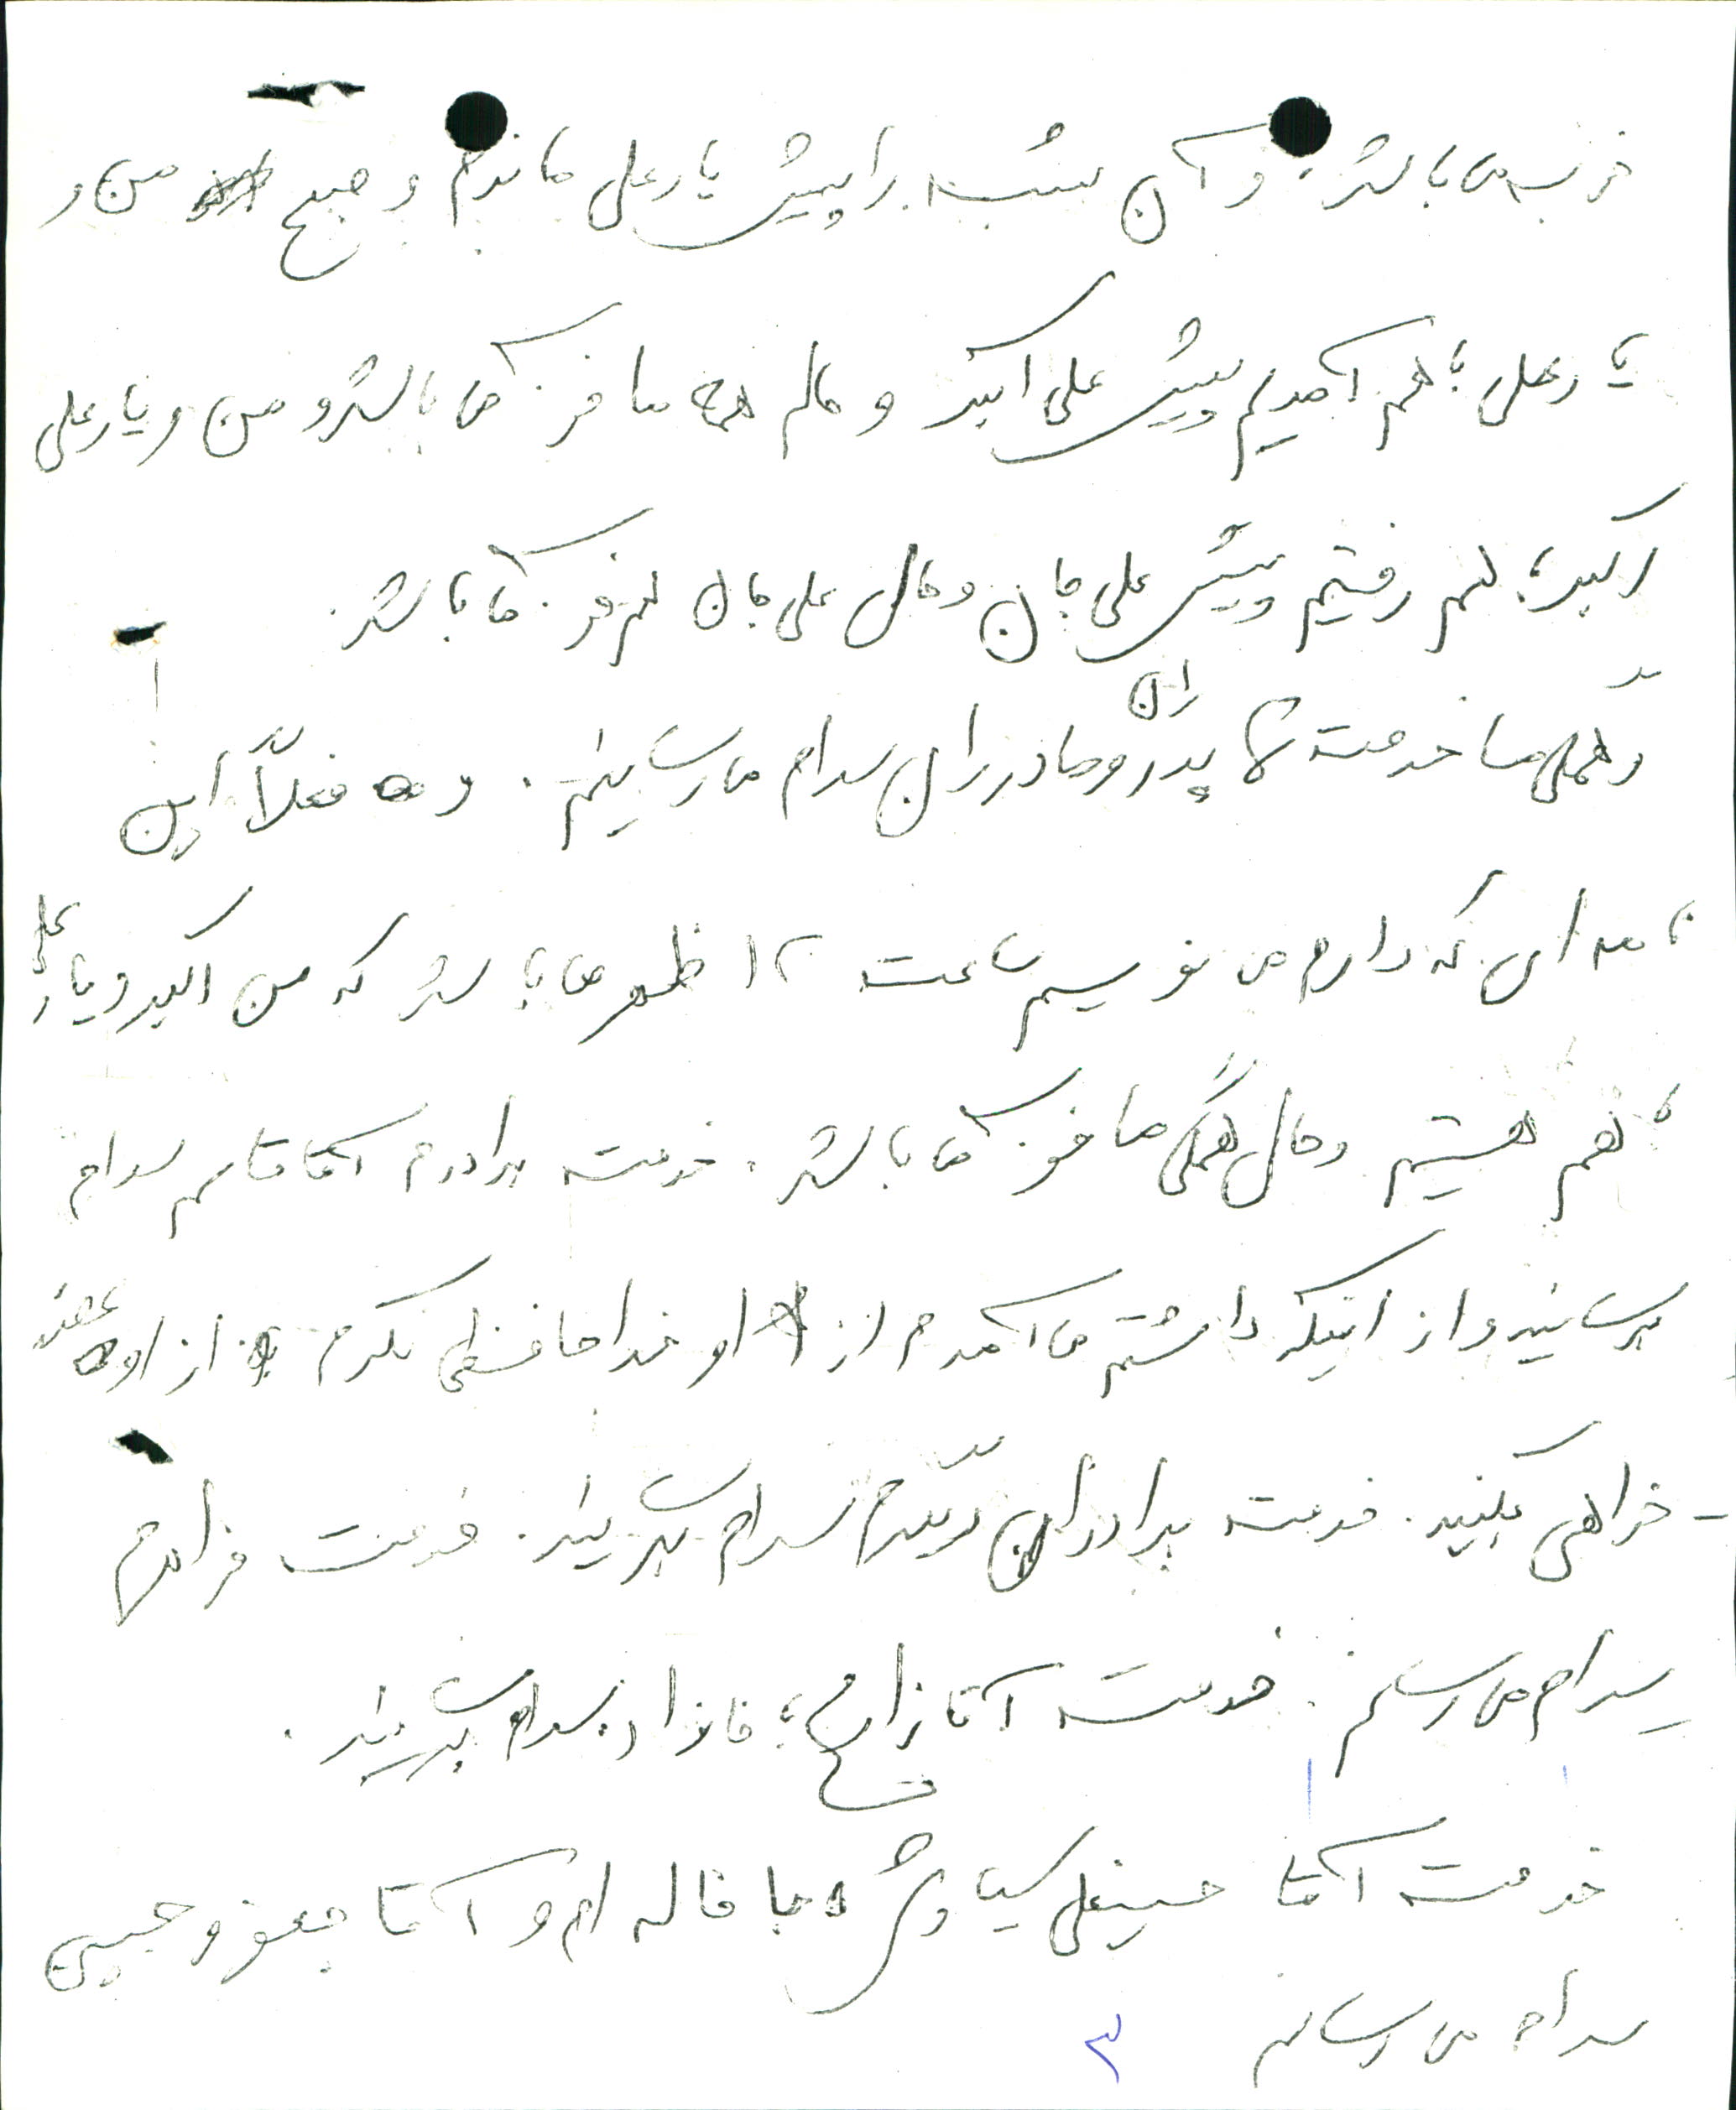 خوب می باشد. و آن شب را پیش یارعلی ماندم و صبح من و
یارعلی با هم آمدیم پیش علی اکبر و حالم همه ما خوب می باشد و من و یارعلی
اکبر با هم رفتیم پیش علی جان و حال علی جان هم خوب می باشد.
و همگی ما خدمت شما پدران و مادران سلام می رسانیم. و فعلاً این
نامه ای که دارم می نویسم ساعت ۱۲ ظهر می باشد که من اکبر و یارعلی
با هم هستیم و حال همگی ما خوب می باشد. خدمت برادرم آقا قاسم سلام
برسانید و از اینکه داشتم می آمدم از او خدا حافظی نکردم از او عذر
- خواهی بکنید. خدمت برادران دیگرم سلام برسانید. خدمت خواهرم
سلام می رسانم. خدمت آقا با خانواده سلام برسانید.
خدمت آقا حسینعلی سیاوش با خاله ام و آقا جعفر و حسین
سلام می رسانم